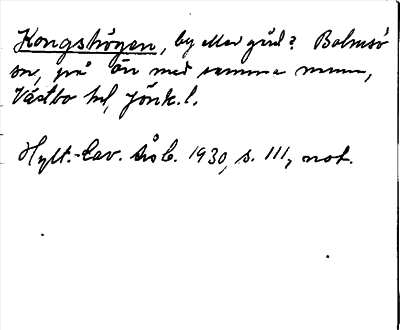 Kongshögen, by eller gård? Bolmsö
sn, på ön med samma namn,
Västbo hd, Jönk. l.
Hylt.-Cav. Årsb. 1930, s. 111, not.